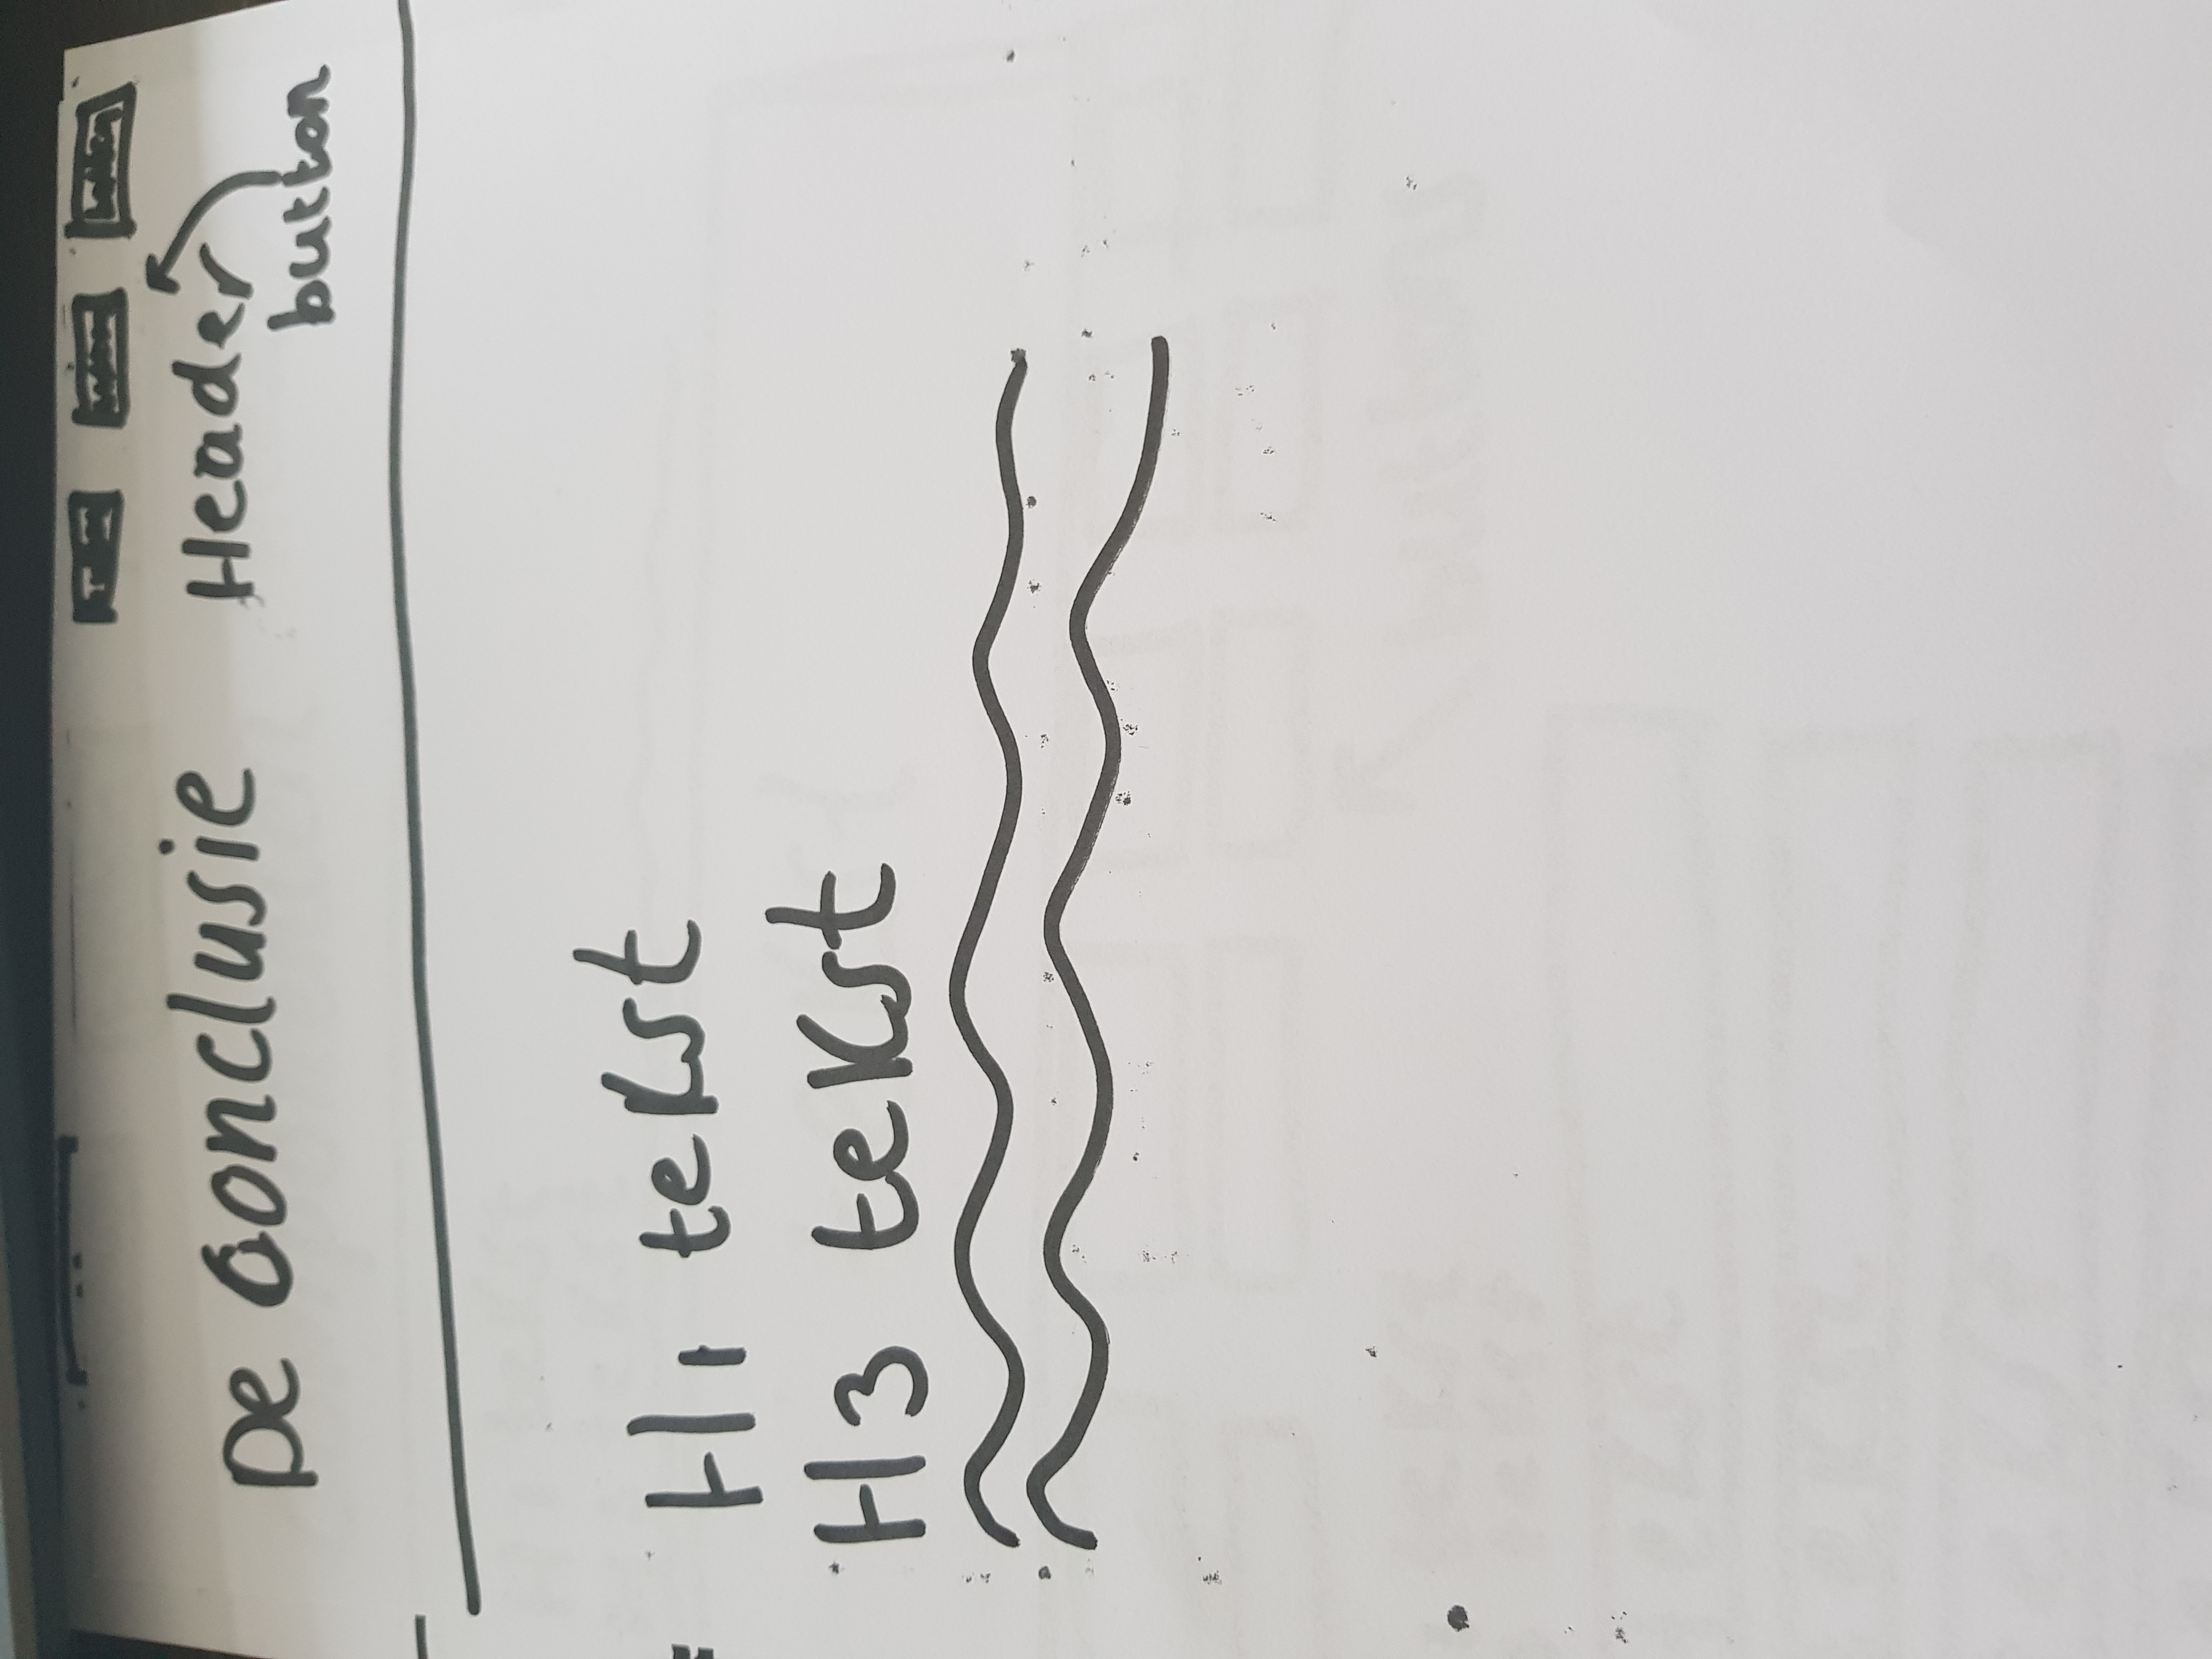 De conclusie
Header
button
H1 tekst
H3 tekst